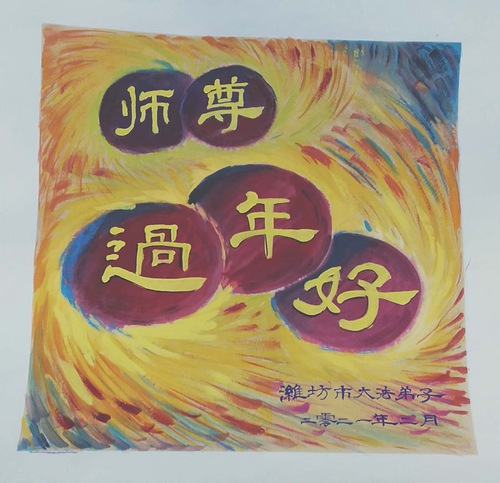 师尊
過年好
潍坊市大法弟子
二零二一年二月